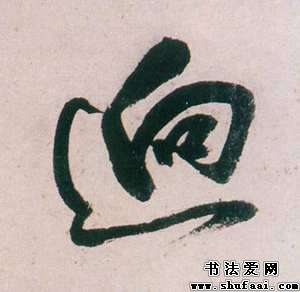 迥
书法爱网
www.shufaai.com